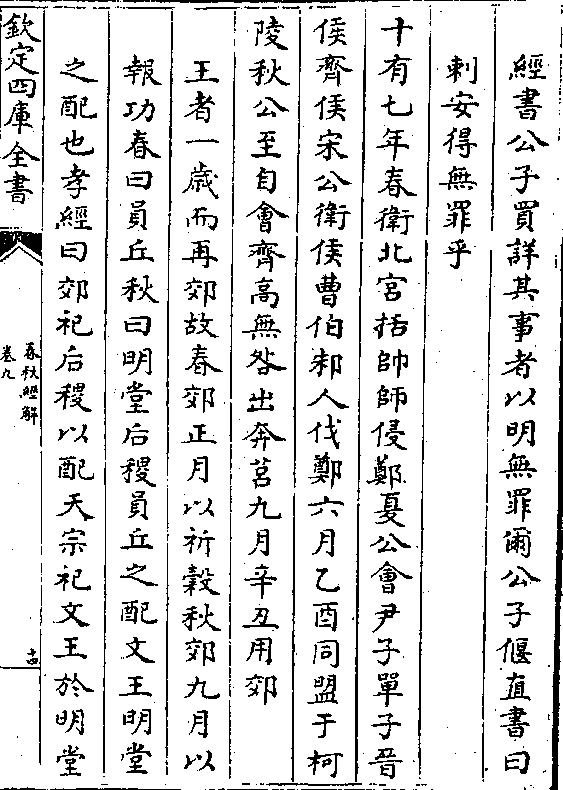 經書公子買詳其事者以明無罪爾公子偃直書曰
刺安得無罪乎
十有七年春衛北宮括帥師侵鄭夏公會尹子單子晉
侯齊侯宋公衛侯曹伯邾人伐鄭六月乙酉同盟于柯
陵秋公至自會齊高無咎出奔莒九月辛丑用郊
王者一歲而再郊故春郊正月以祈穀秋郊九月以
報功春曰員丘秋曰明堂后稷員丘之配文王明堂
之配也孝經曰郊祀后稷以配天宗祀文王於明堂
欽定四庫全書
春秋經解
卷九
十四